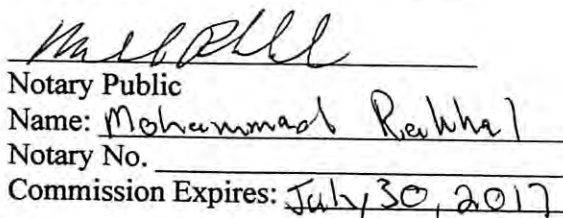 Notary Public
Name: Mohammad
Notary No.
Commission Expires: July 30, 2017